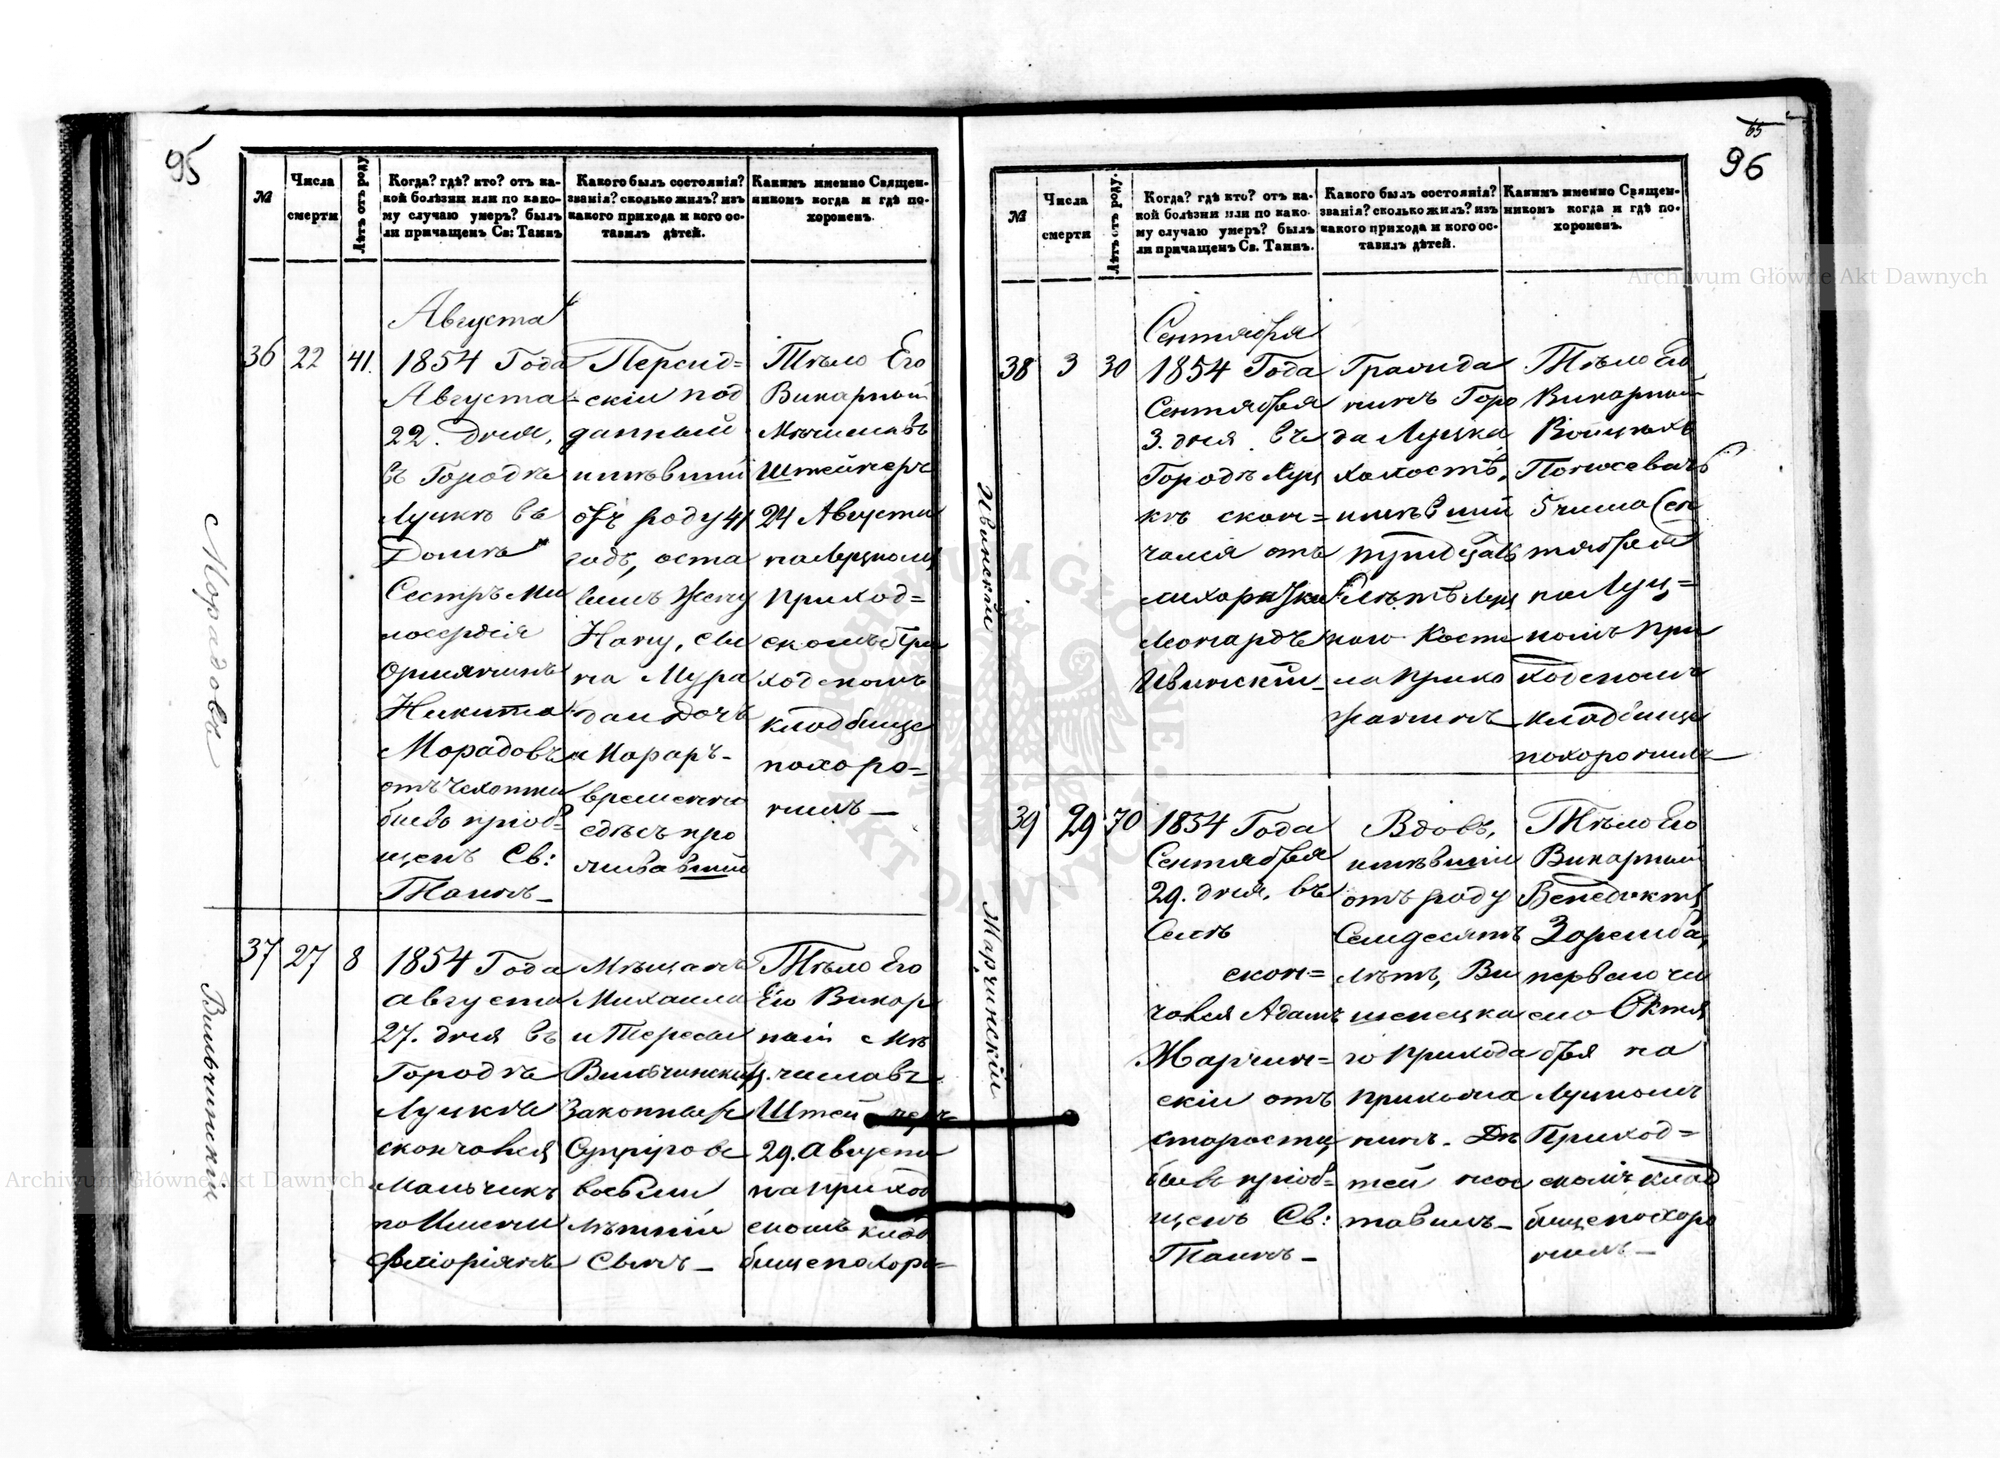 95
№
Числа
смерти
Лѣтъ отъ роду
Когда? гдѣ? кто? отъ ка-
кой болѣзни или по како-
му случаю умеръ? былъ
ли причащенъ Св: Таинъ
Какого былъ состоянія?
званія? сколько жилъ? изъ
какого прихода и кого ос-
тавилъ дѣтей.
Какимъ именно Священ-
никомъ когда и гдѣ по-
хороненъ.
Морадовъ
36
22
41.
Августа
1854 Года
Августа
22. дня,
въ Городѣ
Луцкѣ въ
Домѣ
Сестръ Ми
лосердія
Ормянинъ
Никита
Морадовъ
отъ чехотки
бывъ пріоб-
щенъ Св:
Таинъ
Персид=
скій под
данный
имѣвшій
отъ роду 41
годъ, оста
вилъ жену
Нану, сы
на Мура
дам дочь
временно
сдѣсь про
живавшій
Тѣло Его
Викарный
Мѣчиславъ
Штейнеръ
24 Августа
на Луцкомъ
приход=
скомъ
кладбище
похоро=
нилъ
Вильчинскій
37
27
8
1854 Года
Августа
27. дня въ
Городѣ
Луцкѣ
скончался
Мальчикъ
по Имени
Флоріянъ
Мѣщанъ
Михаила
и Тересы
Вильчинскихъ
Законныхъ
Супруговъ
восьми
лѣтній
Сынъ
Тѣло Его
Его Викар
ній Мѣ
числавъ
Штейнеръ
29. Августа
на приход
скомъ клад
бище похоро=
65
96
№
Числа
смерти
Лѣтъ отъ роду.
Когда? гдѣ кто? отъ ка-
кой болѣзни или по како-
му случаю умеръ? былъ
ли причащенъ Св. Таинъ.
Какого былъ состоянія?
званія? сколько жилъ? изъ
какого прихода и кого ос-
тавилъ дѣтей.
Какимъ именно Священ-
никомъ когда и гдѣ по-
хороненъ.
Ивинскій
38
3
30
Сентября
1854 Года
Сентября
3. дня въ
Городѣ Луц
кѣ скон=
чался отъ
Леонардъ
Ивинскій
Гражда
нинъ Горо
да Луцка
холостъ,
имѣвшій
лѣтъ Луц
кого Косте
ла Прихо
жанинъ
Тѣло Его
Викарный
Войцѣхъ
5 числа Сен
тября
на Луц=
комъ При
ходскомъ
кладбище
похоронилъ
Марчинскій
39
29
70
1854 Года
Сентября
29. дня, въ
Селѣ
скон=
чался Адамъ
Марчин=
скій отъ
старости
бывъ пріоб=
щенъ Св:
Таинъ
Вдовъ,
имѣвшій
отъ роду
Семдесятъ
лѣтъ, Ви
шенецка
го прихода
прихожа
нинъ. Дѣ
тей неос
тавилъ
Тѣло Его
Викарный
Бенедиктъ
Заремба,
первого чи
сла Октя
бря на
Луцкомъ
Приход=
скомъ клад
бище похоро
нилъ
Archiwum Główne Akt Dawnych
Archiwum Główne Akt Dawnych
ARCHIWUM GŁÓWNE AKT DAWNYCH